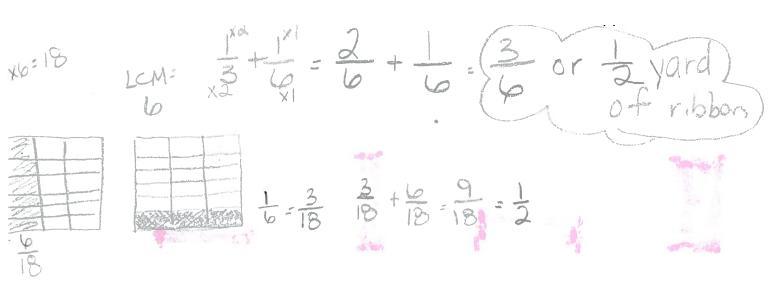 x6=18
LCM:
6
1 x2/3 x2 + 1 x1/6 x1 = 2/6 + 1/6 = 3/6 or 1/2 yard
of ribbon
1/6 = 3/18 3/18 + 6/18 = 9/18 = 1/2
6/18